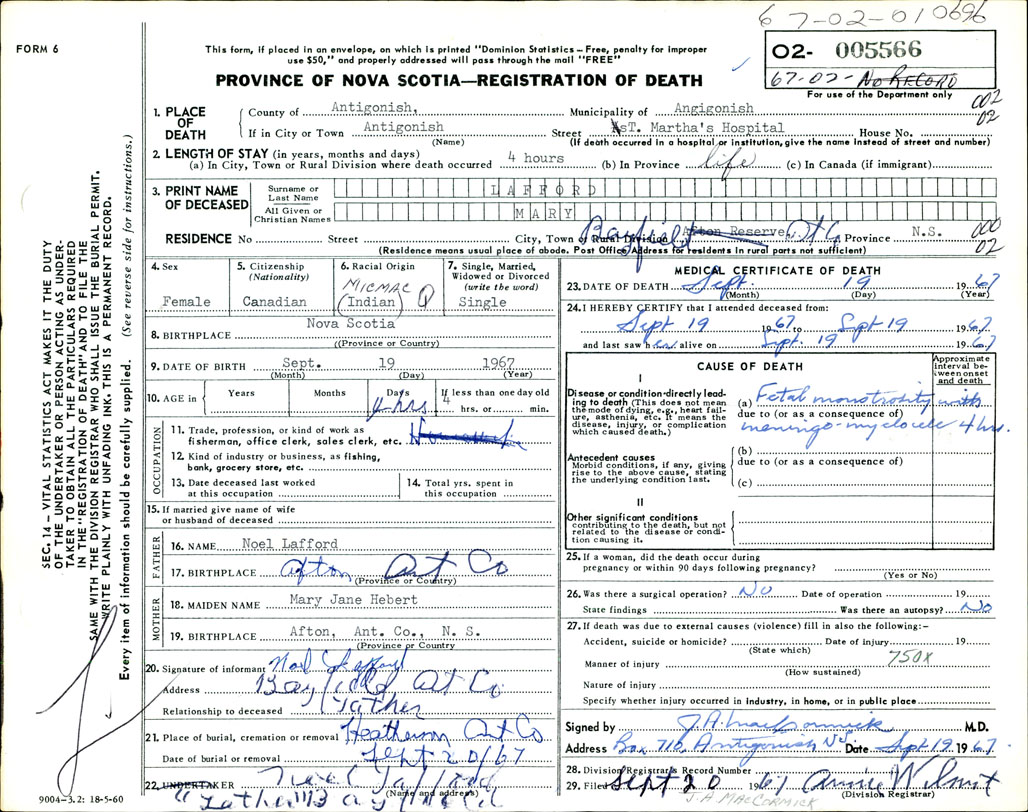 67-02-010696
FORM 6
This form, if placed in an envelope, on which is printed "Dominion Statistics – Free, penalty for improper
use $50," and properly addressed will pass through the mail "FREE"
PROVINCE OF NOVA SCOTIA—REGISTRATION OF DEATH
02- 005566
67-02- No RECORD
For use of the Department only
002
02
SEC. 14 – VITAL STATISTICS ACT MAKES IT THE DUTY
OF THE UNDERTAKER OR PERSON ACTING AS UNDER-
TAKER TO OBTAIN ALL THE PARTICULARS REQUIRED
IN THE "REGISTRATION OF DEATH" AND TO FILE THE
SAME WITH THE DIVISION REGISTRAR WHO SHALL ISSUE THE BURIAL PERMIT.
WRITE PLAINLY WITH UNFADING INK. THIS IS A PERMANENT RECORD.
Every item of information should be carefully supplied. (See reverse side for instructions.)
1. PLACE OF DEATH
County of Antigonish, Municipality of Angigonish
If in City or Town Antigonish Street sT. Martha's Hospital House No.
(Name) (If death occurred in a hospital or institution, give the name instead of street and number)
2. LENGTH OF STAY (in years, months and days)
(a) In City, Town or Rural Division where death occurred 4 hours (b) In Province life (c) In Canada (if immigrant)
3. PRINT NAME OF DECEASED
Surname or Last Name LAFFORD
All Given or Christian Names MARY
RESIDENCE No Street City, Town or Rural Division Bayfield Afton Reserve, Ant Co Province N.S.
000
02
(Residence means usual place of abode. Post Office Address for residents in rural parts not sufficient)
4. Sex Female
5. Citizenship (Nationality) Canadian
6. Racial Origin MICMAC (Indian)
7. Single, Married, Widowed or Divorced (write the word) Single
8. BIRTHPLACE Nova Scotia
(Province or Country)
9. DATE OF BIRTH Sept. 19 1967
(Month) (Day) (Year)
10. AGE in Years Months Days 4 hrs If less than one day old 4 hrs. or min.
OCCUPATION
11. Trade, profession, or kind of work as
fisherman, office clerk, sales clerk, etc.
12. Kind of industry or business, as fishing,
bank, grocery store, etc.
13. Date deceased last worked
at this occupation
14. Total yrs. spent in
this occupation
15. If married give name of wife
or husband of deceased
FATHER
16. NAME Noel Lafford
17. BIRTHPLACE Afton Ant Co
(Province or Country)
MOTHER
18. MAIDEN NAME Mary Jane Hebert
19. BIRTHPLACE Afton, Ant. Co., N. S.
(Province or Country)
20. Signature of informant Noel
Address Bayfield Ant Co
Relationship to deceased Father
21. Place of burial, cremation or removal Heatherton Ant Co
Date of burial or removal Sept 20/67
22. UNDERTAKER Noel Lafford
(Name and address)
Father Bayfield
9004–3.2: 18-5-60
MEDICAL CERTIFICATE OF DEATH
23. DATE OF DEATH Sept. 19 1967
(Month) (Day) (Year)
24. I HEREBY CERTIFY that I attended deceased from:
Sept 19 1967 to Sept 19 1967
and last saw her alive on Sept. 19 1967
CAUSE OF DEATH
Approximate interval between onset and death
I
Disease or condition directly lead-
ing to death (This does not mean
the mode of dying, e.g., heart fail-
ure, asthenia, etc. It means the
disease, injury, or complication
which caused death.)
(a) Fetal monstrosity with
due to (or as a consequence of)
meningo-myelocele 4 hrs.
Antecedent causes
Morbid conditions, if any, giving
rise to the above cause, stating
the underlying condition last.
(b)
due to (or as a consequence of)
(c)
II
Other significant conditions
contributing to the death, but not
related to the disease or condi-
tion causing it.
25. If a woman, did the death occur during
pregnancy or within 90 days following pregnancy?
(Yes or No)
26. Was there a surgical operation? No Date of operation 19
State findings Was there an autopsy? No
27. If death was due to external causes (violence) fill in also the following:-
Accident, suicide or homicide? Date of injury 19
(State which)
750X
Manner of injury
(How sustained)
Nature of injury
Specify whether injury occurred in industry, in home, or in public place
Signed by J.A. MacCormick M.D.
Address Box 710, Antigonish NS Date Sept 19 1967.
28. Division Registrar's Record Number
29. Filed Sept 20 1967
(Division Registrar)
J.A. MACCORMICK